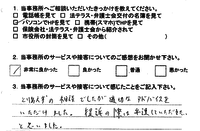 1. 当事務所へご相談いただいたきっかけを教えてください。
□ 電話帳を見て □ 法テラス・弁護士会交付の名簿を見て
☑ パソコンでHPを見て □ 携帯(スマホ)でHPを見て
□ 保険会社・法テラス・弁護士会から紹介されて
□ 市役所の封筒を見て □ その他( )
2. 当事務所のサービスや接客についてのご感想をお聞かせください。
☑ 非常に良かった □ 良かった □ 普通 □ 悪かった
3. 当事務所のサービスや接客について感じたことをご記入下さい。
相談でしたが適切なアドバイスを
いただけました。
と思いました。